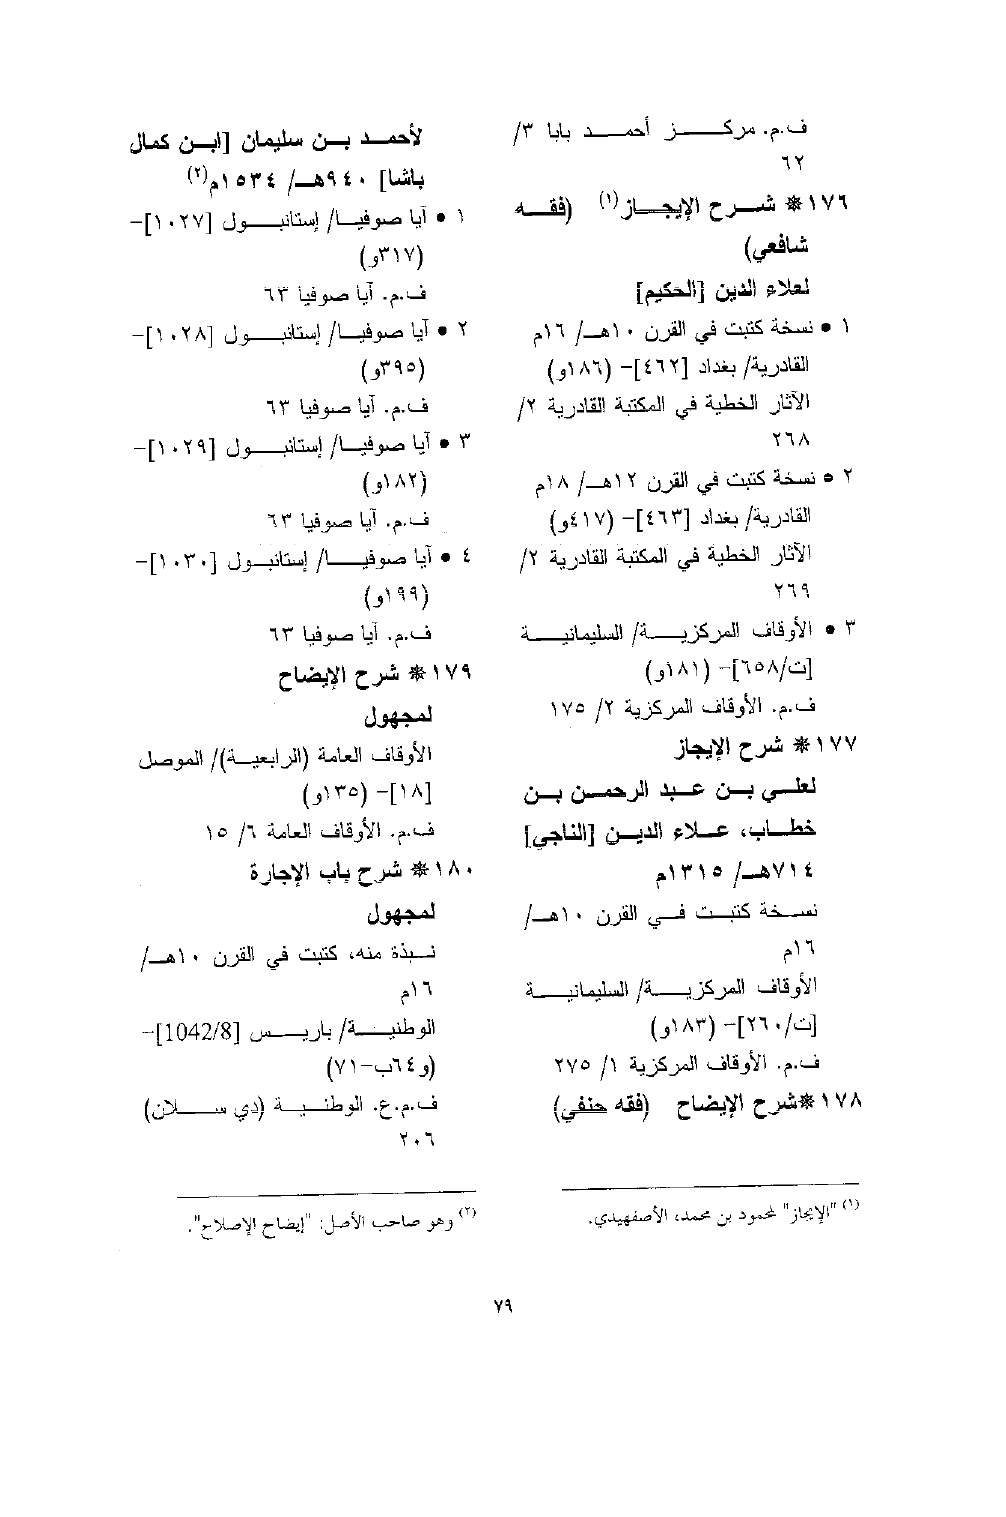 ف.م. مركز أحمد بابا ٣/
٦٢
١٧٦ * شرح الإيجاز(١) (فقه
شافعي)
لعلاء الدين [الحكيم]
١ • نسخة كتبت في القرن ١٠هـ/ ١٦م
القادرية/ بغداد [٤٦٢]- (١٨٦و)
الآثار الخطية في المكتبة القادرية ٢/
٢٦٨
٢ • نسخة كتبت في القرن ١٢هـ/ ١٨م
القادرية/ بغداد [٤٦٣]- (٤١٧و)
الآثار الخطية في المكتبة القادرية ٢/
٢٦٩
٣ • الأوقاف المركزية/ السليمانية
[ت/٦٥٨]- (١٨١و)
ف.م. الأوقاف المركزية ٢/ ١٧٥
١٧٧ * شرح الإيجاز
لعلي بن عبد الرحمن بن
خطاب، علاء الدين [الناجي]
٧١٤هـ/ ١٣١٥م
نسخة كتبت في القرن ١٠هـ/
١٦م
الأوقاف المركزية/ السليمانية
[ت/٢٦٠]- (١٨٣و)
ف.م. الأوقاف المركزية ١/ ٢٧٥
١٧٨ *شرح الإيضاح (فقه حنفي)
(١) "الإيجاز" لمحمود بن محمد، الأصفهيدي.
لأحمد بن سليمان [ابن كمال
باشا] ٩٤٠هـ/ ١٥٣٤م(٢)
١ • آيا صوفيا/ إستانبول [١٠٢٧]-
(٣١٧و)
ف.م. آيا صوفيا ٦٣
٢ • آيا صوفيا/ إستانبول [١٠٢٨]-
(٣٩٥و)
ف.م. آيا صوفيا ٦٣
٣ • آيا صوفيا/ إستانبول [١٠٢٩]-
(١٨٢و)
ف.م. آيا صوفيا ٦٣
٤ • آيا صوفيا/ إستانبول [١٠٣٠]-
(١٩٩و)
ف.م. آيا صوفيا ٦٣
١٧٩ * شرح الإيضاح
لمجهول
الأوقاف العامة (الرابعية)/ الموصل
[١٨]- (١٣٥و)
ف.م. الأوقاف العامة ٦/ ١٥
١٨٠ * شرح باب الإجارة
لمجهول
نبذة منه، كتبت في القرن ١٠هـ/
١٦م
الوطنية/ باريس [1042/8]-
(و٦٤ب-٧١)
ف.م.ع. الوطنية (دي سلان)
٢٠٦
(٢) وهو صاحب الأصل: "إيضاح الإصلاح".
٧٩